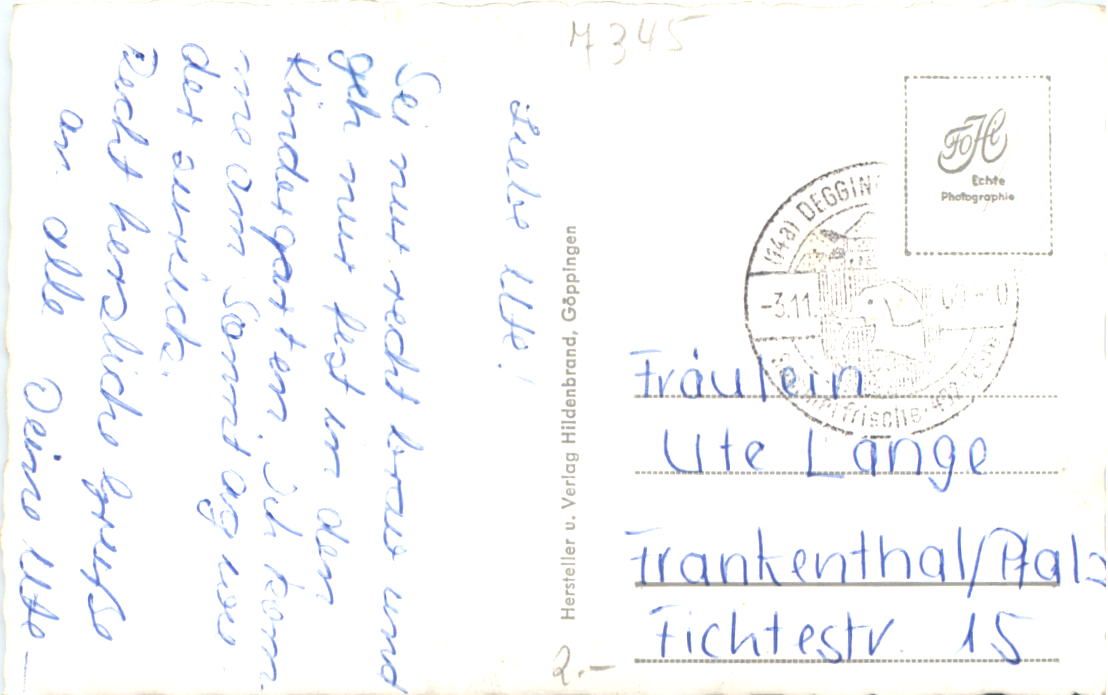 Liebe Ute!
Sei nur recht brav und
geh nur fest in den
Kindergarten. Ich kom-
me am Sonntag wie
der zurück.
Recht herzliche Grüße
an alle Deine Ute
Hersteller u. Verlag Hildenbrand, Göppingen
7345
FoHi
Echte
Photographie
(14a) DEGGIN
-3.11
frische
Fräulein
Ute Lange
Frankenthal/Pfalz
Fichtestr. 15
2.-